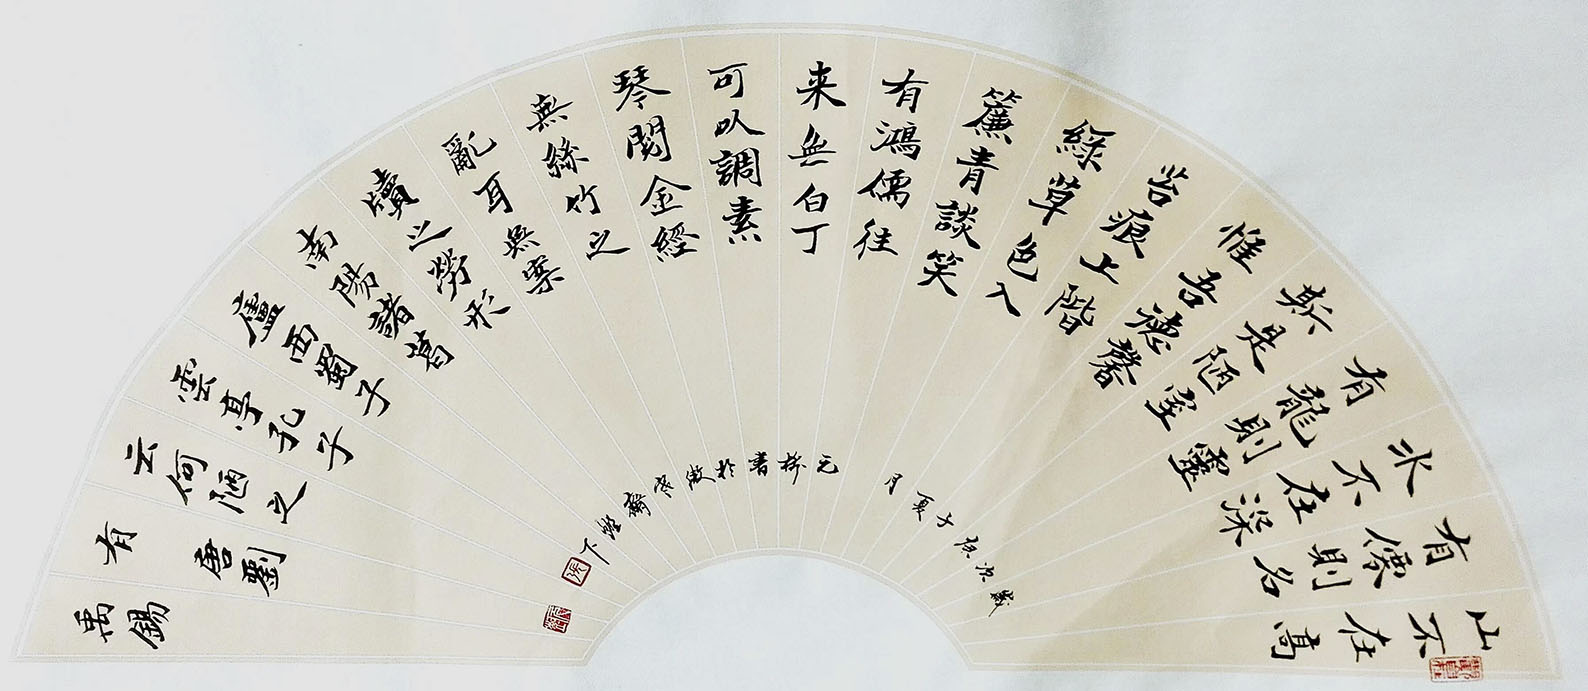 山不在高
有僊則名
水不在深
有龍則靈
斯是陋室
惟吾德馨
苔痕上階
綠草色入
簾青談笑
有鴻儒往
来無白丁
可以調素
琴閱金經
無絲竹之
亂耳無案
牘之勞形
南陽諸葛
廬西蜀子
雲亭孔子
云何陋之
有 唐劉
禹錫
歲次庚子夏月
元 書於傲寒齋燈下
张